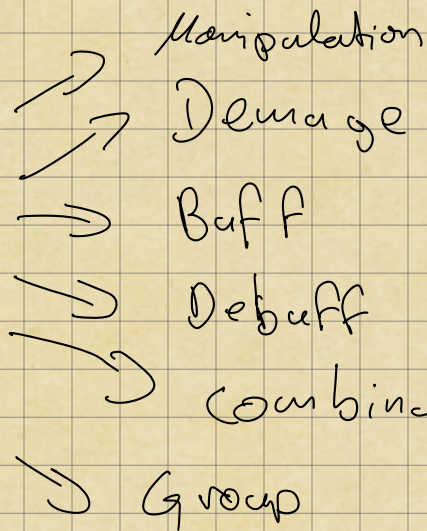 Manipulation
Demage
Buff
Debuff
Combine
Group